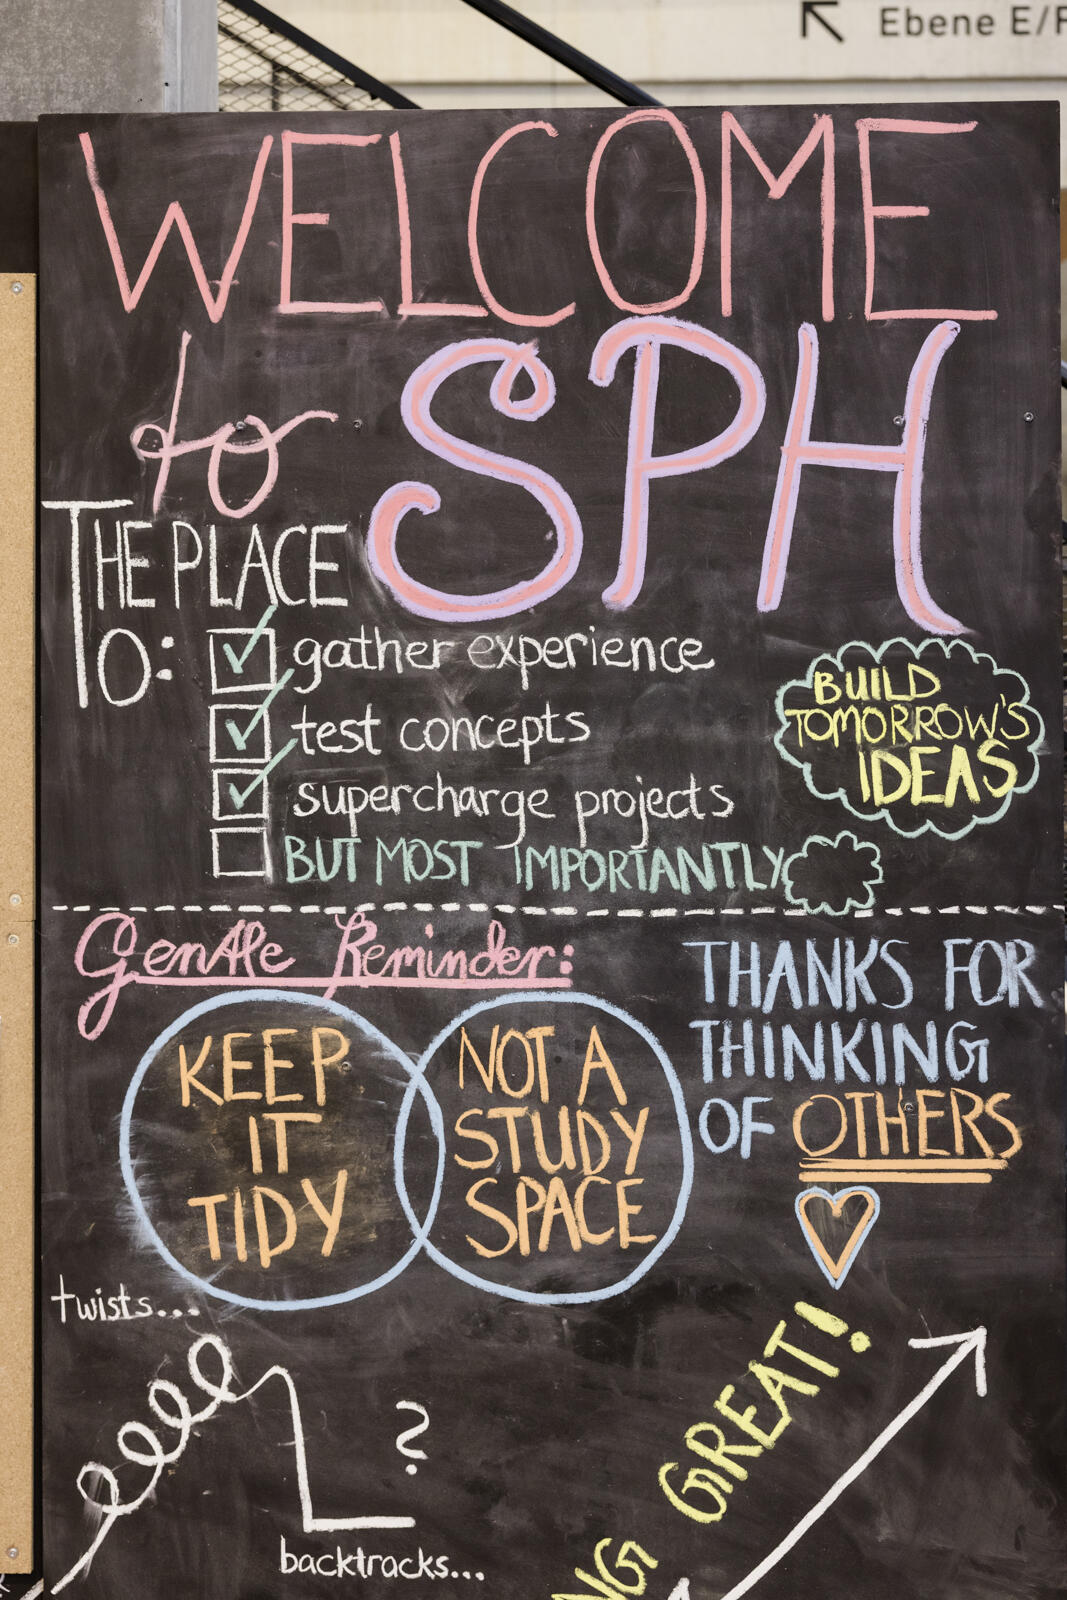 Ebene E/F
WELCOME
to SPH
THE PLACE
TO:
gather experience
test concepts
supercharge projects
BUT MOST IMPORTANTLY
BUILD
TOMORROW'S
IDEAS
Gentle Reminder:
KEEP
IT
TIDY
NOT A
STUDY
SPACE
THANKS FOR
THINKING
OF OTHERS
twists...
?
backtracks...
GREAT!